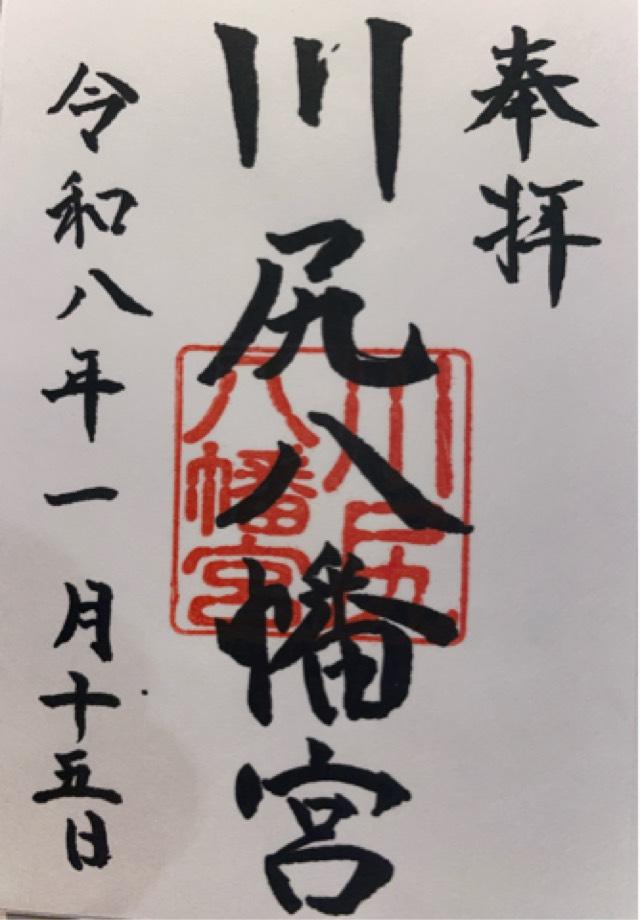 奉拝
川尻八幡宮
川尻
八幡宮
令和八年一月十五日